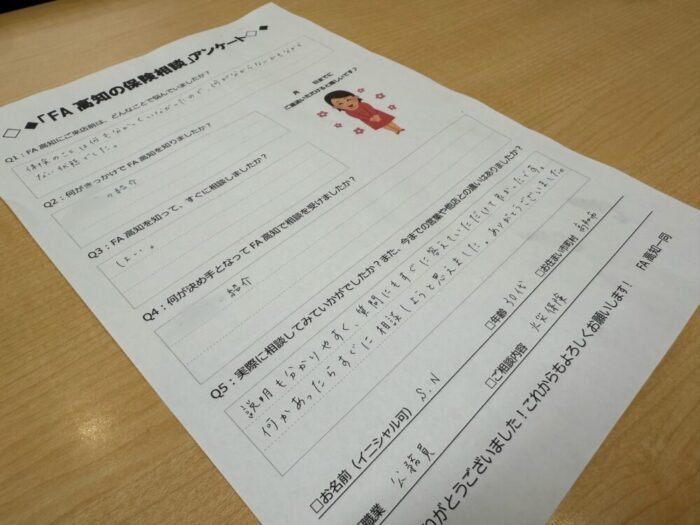 ◇◆「FA 高知の保険相談」アンケート◆◇
月 日までに
ご返信いただけると嬉しいです♪
Q1：FA 高知にご来店前は、どんなことで悩んでいましたか？
保険のことは何も分かっていなかったので、何が分からないかも分から
ない状態でした。
Q2：何がきっかけで FA 高知を知りましたか？
の紹介
Q3：FA 高知を知って、すぐに相談しましたか？
はい。
Q4：何が決め手となって FA 高知で相談を受けましたか？
紹介
Q5：実際に相談してみていかがでしたか？また、今までの営業や他店との違いはありましたか？
説明も分かりやすく、質問にもすぐに答えていただけて良かったです。
何かあったらすぐに相談しようと思えました。ありがとうございました。
□お名前（イニシャル可） S.N □年齢 30代 □お住まい市町村 高知市
職業 公務員 □ご相談内容 火災保険
りがとうございました！これからもよろしくお願いします！ FA 高知一同